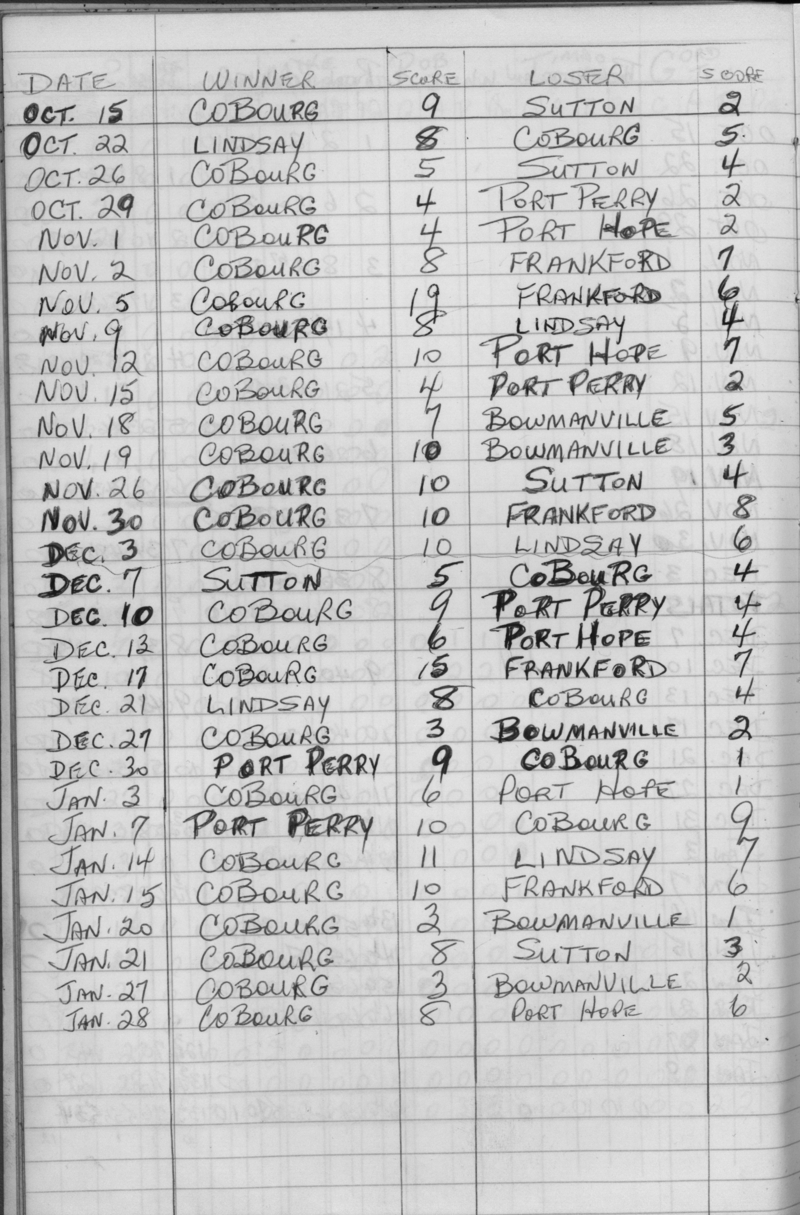 DATE WINNER SCORE LOSER SCORE
OCT. 15 COBOURG 9 SUTTON 2
OCT. 22 LINDSAY 8 COBOURG 5
OCT. 26 COBOURG 5 SUTTON 4
OCT. 29 COBOURG 4 PORT PERRY 2
NOV. 1 COBOURG 4 PORT HOPE 2
NOV. 2 COBOURG 8 FRANKFORD 7
NOV. 5 COBOURG 19 FRANKFORD 6
NOV. 9 COBOURG 8 LINDSAY 4
NOV. 12 COBOURG 10 PORT HOPE 7
NOV. 15 COBOURG 4 PORT PERRY 2
NOV. 18 COBOURG 7 BOWMANVILLE 5
NOV. 19 COBOURG 10 BOWMANVILLE 3
NOV. 26 COBOURG 10 SUTTON 4
NOV. 30 COBOURG 10 FRANKFORD 8
DEC. 3 COBOURG 10 LINDSAY 6
DEC. 7 SUTTON 5 COBOURG 4
DEC. 10 COBOURG 9 PORT PERRY 4
DEC. 13 COBOURG 6 PORT HOPE 4
DEC. 17 COBOURG 15 FRANKFORD 7
DEC. 21 LINDSAY 8 COBOURG 4
DEC. 27 COBOURG 3 BOWMANVILLE 2
DEC. 30 PORT PERRY 9 COBOURG 1
JAN. 3 COBOURG 6 PORT HOPE 1
JAN. 7 PORT PERRY 10 COBOURG 9
JAN. 14 COBOURG 11 LINDSAY 7
JAN. 15 COBOURG 10 FRANKFORD 6
JAN. 20 COBOURG 2 BOWMANVILLE 1
JAN. 21 COBOURG 8 SUTTON 3
JAN. 27 COBOURG 3 BOWMANVILLE 2
JAN. 28 COBOURG 8 PORT HOPE 6